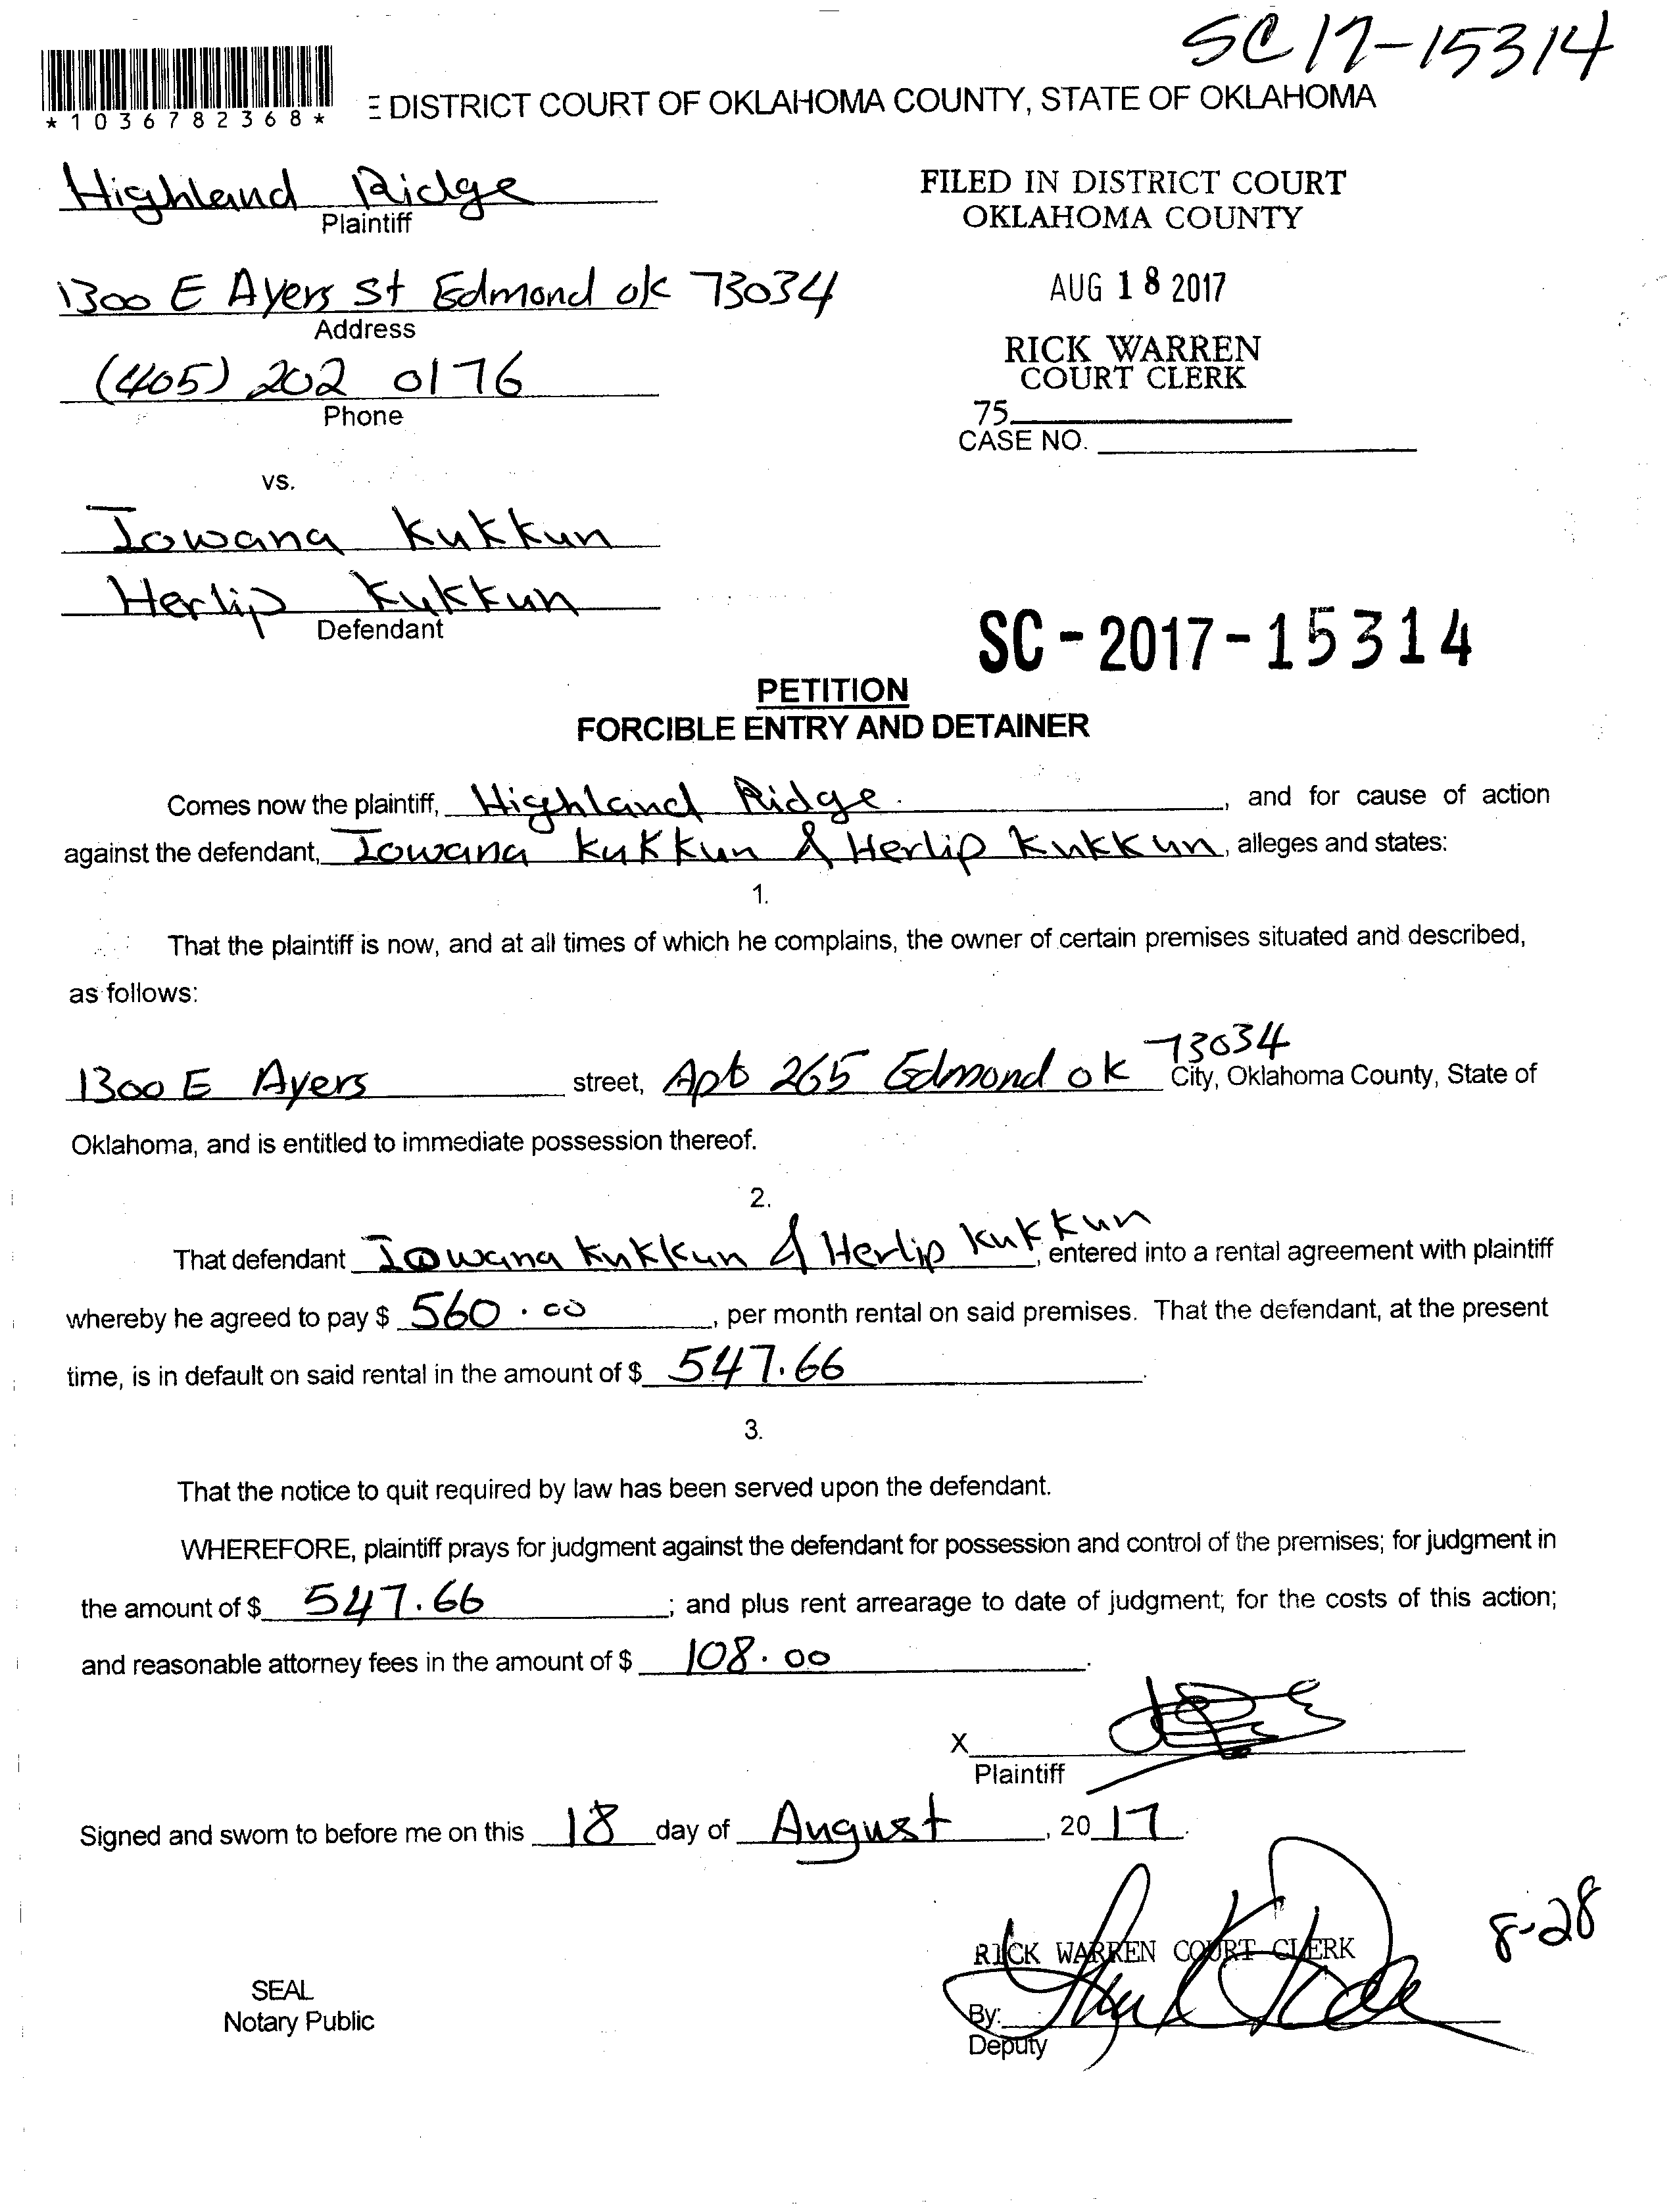 SC17-15314
*1036782368*
E DISTRICT COURT OF OKLAHOMA COUNTY, STATE OF OKLAHOMA
Highland Ridge
Plaintiff
FILED IN DISTRICT COURT
OKLAHOMA COUNTY
1300 E Ayers St Edmond ok 73034
Address
AUG 18 2017
(405) 202 0176
Phone
RICK WARREN
COURT CLERK
75
CASE NO.
vs.
Iowana Kukkun
Herlip Kukkun
Defendant
SC-2017-15314
PETITION
FORCIBLE ENTRY AND DETAINER
Comes now the plaintiff, Highland Ridge, and for cause of action
against the defendant, Iowana Kukkun & Herlip Kukkun, alleges and states:
1.
That the plaintiff is now, and at all times of which he complains, the owner of certain premises situated and described,
as follows:
1300 E Ayers street, Apt 265 Edmond ok 73034 City, Oklahoma County, State of
Oklahoma, and is entitled to immediate possession thereof.
2.
That defendant Iowana Kukkun & Herlip Kukkun, entered into a rental agreement with plaintiff
whereby he agreed to pay $ 560.00, per month rental on said premises. That the defendant, at the present
time, is in default on said rental in the amount of $ 547.66.
3.
That the notice to quit required by law has been served upon the defendant.
WHEREFORE, plaintiff prays for judgment against the defendant for possession and control of the premises; for judgment in
the amount of $ 547.66; and plus rent arrearage to date of judgment; for the costs of this action;
and reasonable attorney fees in the amount of $ 108.00.
X
Plaintiff
Signed and sworn to before me on this 18 day of August, 2017.
RICK WARREN COURT CLERK
8-28
SEAL
Notary Public
By:
Deputy